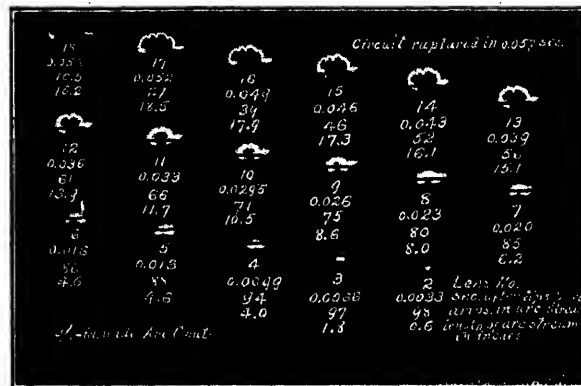 Circuit ruptured in 0.057 sec.
18
17
0.052
18.5
16
0.049
39
17.9
15
0.046
46
17.3
14
0.043
52
16.1
13
0.039
56
15.1
12
0.036
61
13.9
11
0.033
66
11.7
10
0.0295
71
10.5
9
0.026
75
8.6
8
0.023
80
8.0
7
0.020
85
6.2
6
0.016
86
4.0
5
0.013
88
4.6
4
0.0099
94
4.0
3
0.0066
97
1.8
2 Lens No.
0.0033 Sec. after tips
98 amps. in arc stream
0.6 length of arc stream
in inches